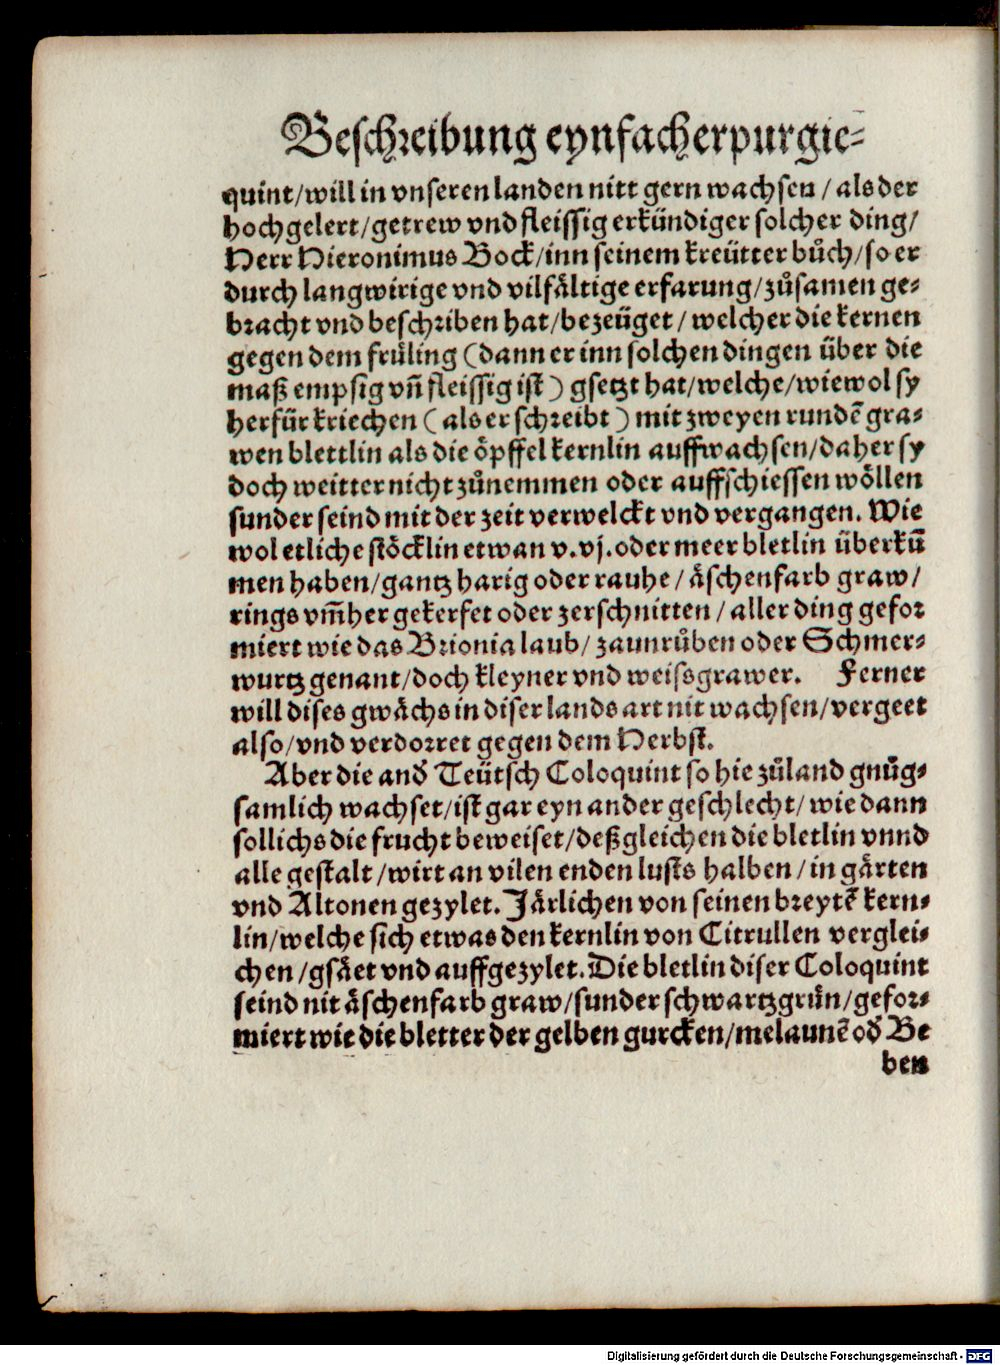 Beschreibung eynfacherpurgie⸗
quint/will in vnseren landen nitt gern wachsen / als der
hochgelert/getrew vnd fleissig erkündiger solcher ding/
Herr Hieronimus Bock/inn seinem kreütter bůch/so er
durch langwirige vnd vilfåltige erfarung/zůsamen ge⸗
bracht vnd beschriben hat/bezeüget / welcher die kernen
gegen dem früling (dann er inn solchen dingen über die
maß empsig vñ fleissig ist) gsetzt hat/welche/wiewol sy
herfür kriechen ( als er schreibt ) mit zweyen rundẽ gra⸗
wen blettlin als die öpffel kernlin auffwachsen/daher sy
doch weitter nicht zůnemmen oder auffschiessen wöllen
sunder seind mit der zeit verwelckt vnd vergangen. Wie
wol etliche stöcklin etwan v.vj.oder meer bletlin überkũ
men haben/gantz harig oder rauhe / åschenfarb graw/
rings vm̃her gekerfet oder zerschnitten / aller ding gefor
miert wie das Brionia laub/ zaunrůben oder Schmer⸗
wurtz genant/doch kleyner vnd weissgrawer. Ferner
will dises gwåchs in diser lands art nit wachsen/vergeet
also/vnd verdorret gegen dem Herbst.
Aber die and̕ Teütsch Coloquint so hie zůland gnůg⸗
samlich wachset/ist gar eyn ander geschlecht/wie dann
sollichs die frucht beweiset/deßgleichen die bletlin vnnd
alle gestalt /wirt an vilen enden lusts halben / in gårten
vnd Altonen gezylet. Jårlichen von seinen breytẽ kern⸗
lin/welche sich etwas den kernlin von Citrullen verglei⸗
chen /gsået vnd auffgezylet. Die bletlin diser Coloquint
seind nit åschenfarb graw/sunder schwartzgrün/gefor⸗
miert wie die bletter der gelben gurcken/melaunẽ od̕ Be
ben
Digitalisierung gefördert durch die Deutsche Forschungsgemeinschaft - DFG